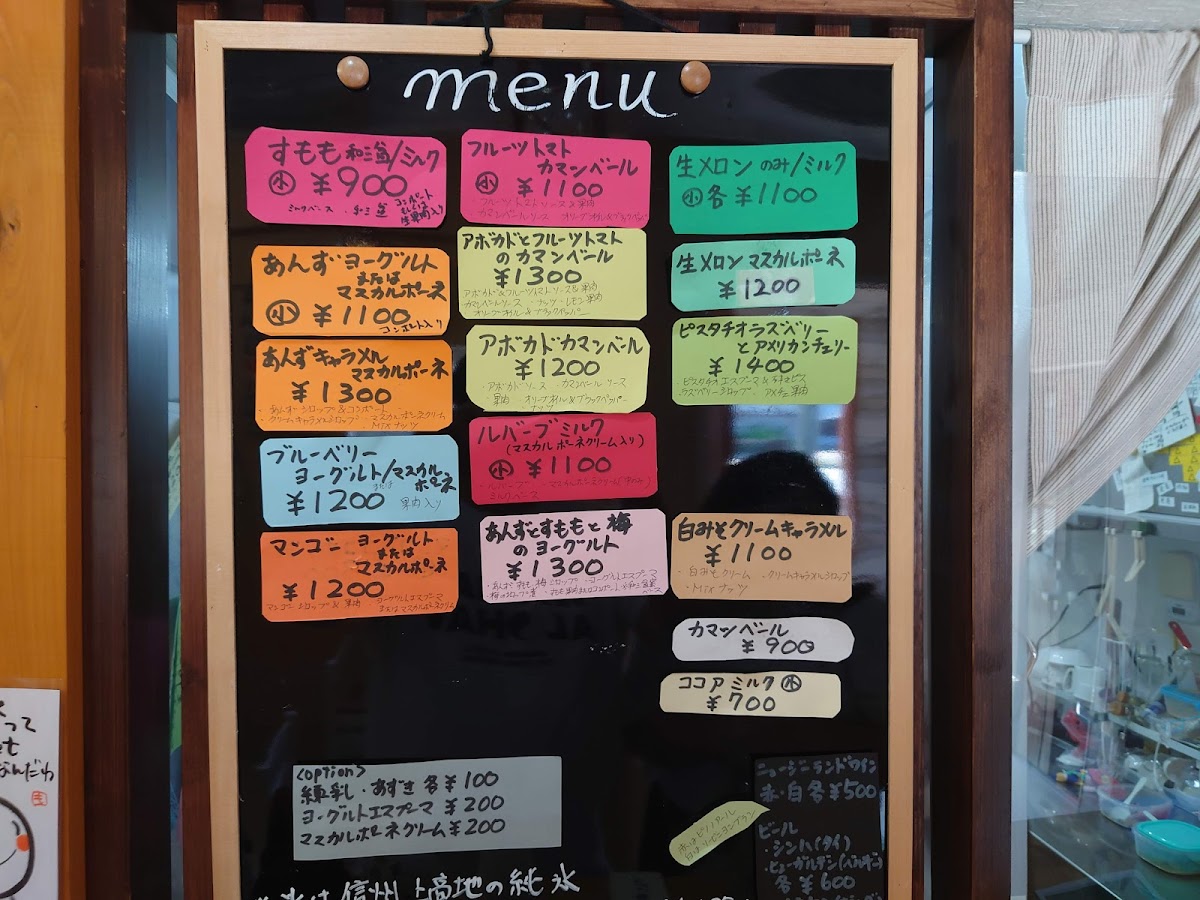 menu
すもも 和三盆/ミルク
小 ¥900
ミルクベース・和三盆
コンポート
もしくは
生果肉入り
あんずヨーグルト
または
マスカルポーネ
小 ¥1100
コンポート入り
あんずキャラメル
マスカルポーネ
¥1300
・あんずシロップ&コンポート
・クリームキャラメルシロップ ・マスカルポーネクリーム
・MIXナッツ
ブルーベリー
ヨーグルト/マスカルポーネ
または
¥1200 果肉入り
マンゴー ヨーグルト
または
マスカルポーネ
¥1200
マンゴーシロップ&果肉 ヨーグルトエスプーマ
またはマスカルポーネクリーム
フルーツトマト
カマンベール
小 ¥1100
・フルーツトマトソース&果肉
・カマンベールソース ・オリーブオイル&ブラックペッパー
アボカドとフルーツトマト
のカマンベール
¥1300
アボカド&フルーツトマトソース&果肉
・カマンベールソース ・ナッツ・レモン果肉
・オリーブオイル&ブラックペッパー
アボカドカマンベール
¥1200
・アボカドソース ・カマンベールソース
・果肉 ・オリーブオイル&ブラックペッパー
・ナッツ
ルバーブミルク
(マスカルポーネクリーム入り)
小 ¥1100
・ルバーブ ・マスカルポーネクリーム
ミルクベース
あんずとすももと梅
のヨーグルト
¥1300
・あんず すもも 梅シロップ ・ヨーグルトエスプーマ
生メロン のみ/ミルク
小 各 ¥1100
生メロン マスカルポーネ
¥1200
ピスタチオラズベリー
とアメリカンチェリー
¥1400
・ピスタチオエスプーマ&
ラズベリーシロップ ・アメチェ果肉
白みそクリームキャラメル
¥1100
・白みそクリーム ・クリームキャラメルシロップ
・MIXナッツ
カマンベール
¥900
ココアミルク 小
¥700
<option>
練乳・あずき 各¥100
ヨーグルトエスプーマ ¥200
マスカルポーネクリーム ¥200
ニュージーランドワイン
赤・白 各¥500
ビール
・シンハ(タイ)
・ヒューガルデン(ベルギー)
各 ¥600
赤はピノノワール
白はソービニヨンブラン
氷は信州上高地の純氷
って
なんだわ